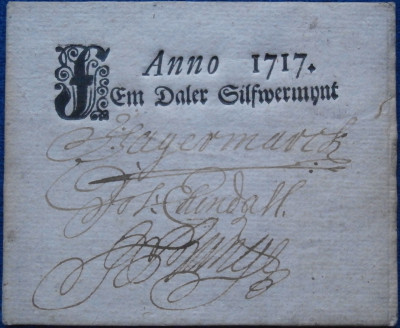 Anno 1717.
FEm Daler Silfwermynt
Hagermarck
Jos: Ehindall.